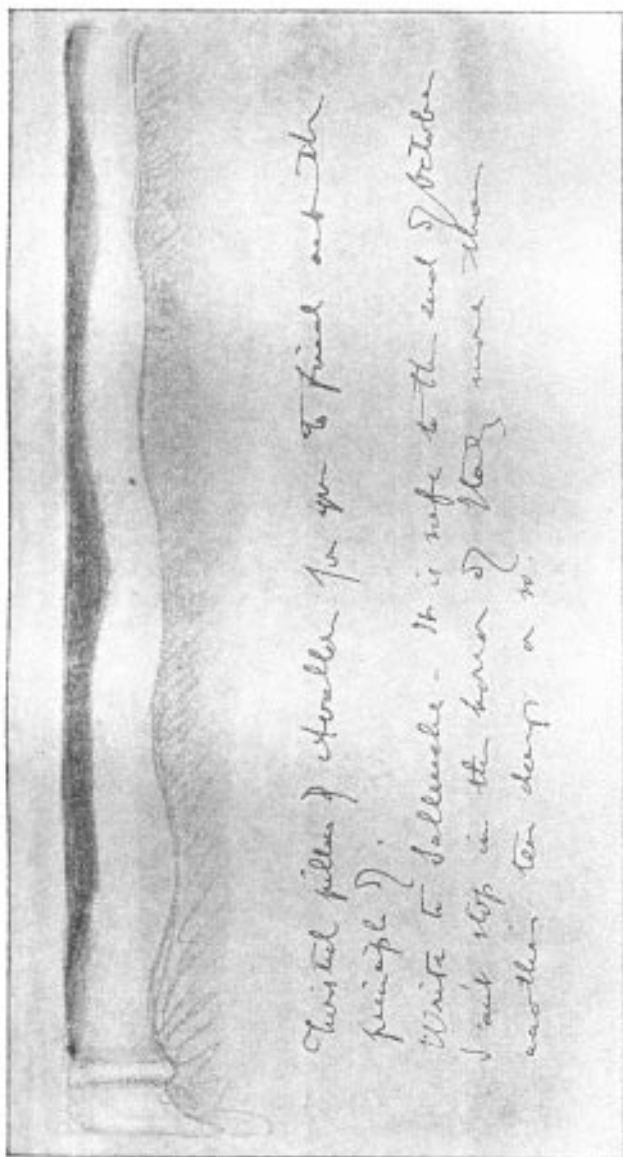 Twisted pillar of Avallon for you to find out the
principle of.
Write to Sallenche - It is safe to the end of October
I can't stop in the horror of Italy more than
another ten days or so.